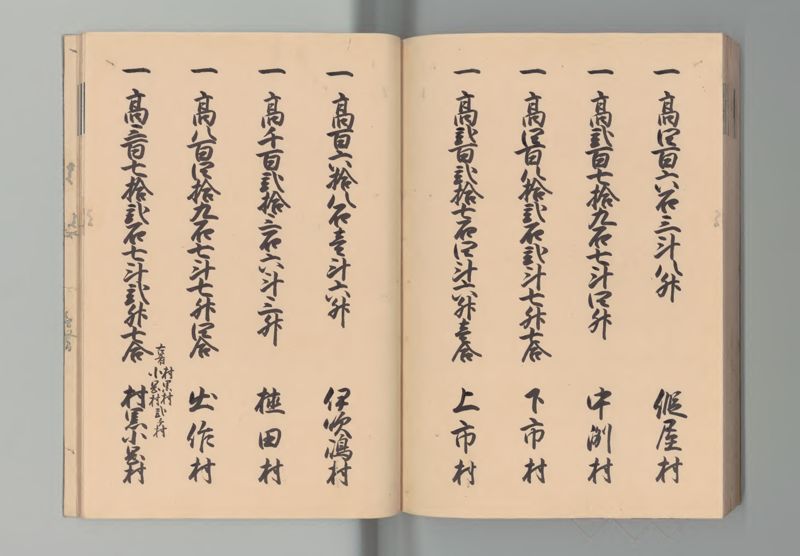 一 高四百六石三斗八升 俵屋村
一 高弐百七拾九石七斗四升 中削村
一 高四百八拾弐石弐斗七升七合 下市村
一 高弐百弐拾七石四斗六升壱合 上市村
一 高百六拾八石壱斗六升 伊吹嶋村
一 高千百弐拾三石六斗三升 植田村
一 高八百四拾九石七斗七升四合 出作村
一 高三百七拾弐石七斗弐升七合 村黒小黒村
村黒村
小黒村弐ヶ村